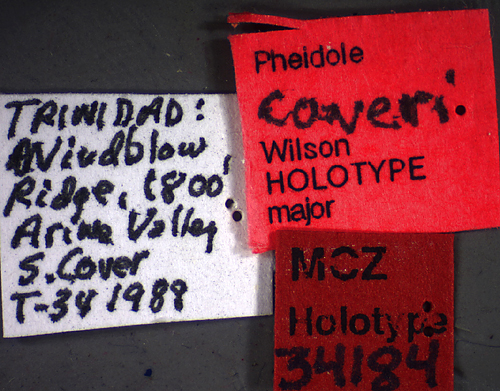 TRINIDAD:
Windblow
Ridge, 1800'
Arima Valley
S. Cover
T-34 1989
Pheidole
coveri
Wilson
HOLOTYPE
major
MCZ
Holotype
34184